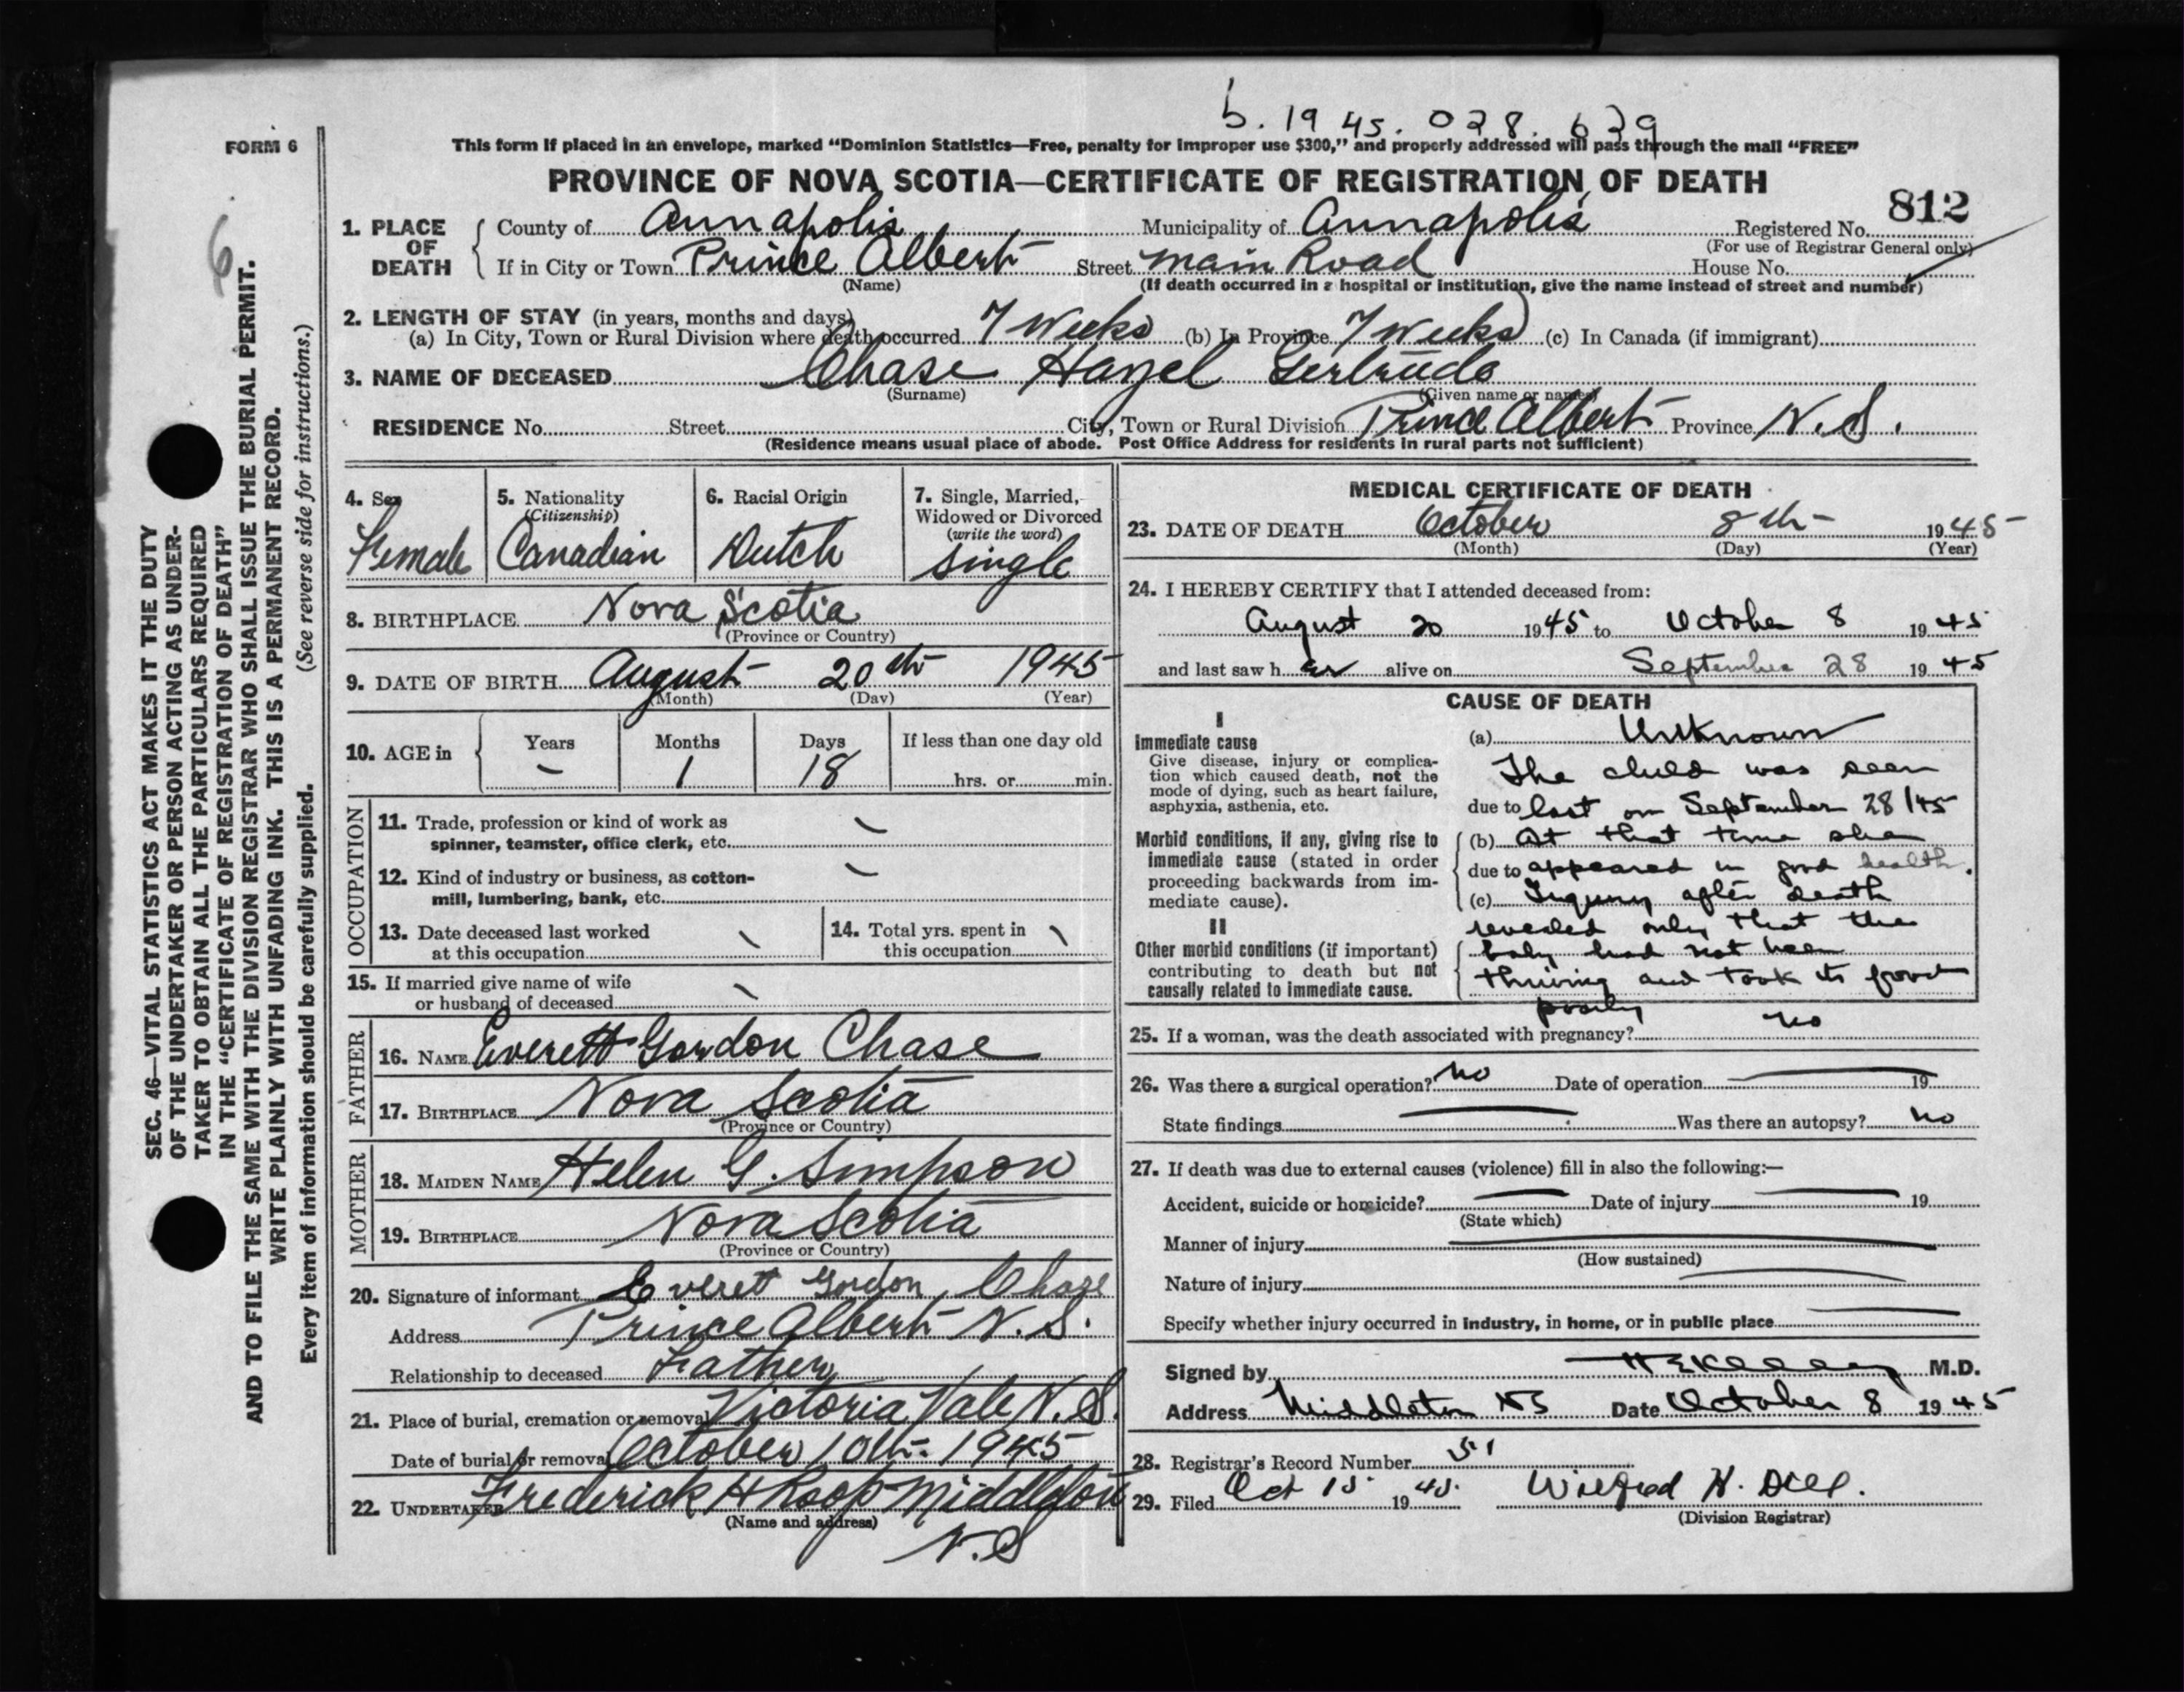 b. 1945. 028. 639
FORM 6
This form if placed in an envelope, marked "Dominion Statistics—Free, penalty for improper use $300," and properly addressed will pass through the mail "FREE"
PROVINCE OF NOVA SCOTIA—CERTIFICATE OF REGISTRATION OF DEATH
812
6
1. PLACE OF DEATH
County of Annapolis Municipality of Annapolis Registered No.
(For use of Registrar General only)
If in City or Town Prince Albert Street Main Road House No.
(Name) (If death occurred in a hospital or institution, give the name instead of street and number)
2. LENGTH OF STAY (in years, months and days)
(a) In City, Town or Rural Division where death occurred 7 Weeks (b) In Province 7 Weeks (c) In Canada (if immigrant)
3. NAME OF DECEASED Chase Hazel Gertrude
(Surname) (Given name or names)
RESIDENCE No. Street City, Town or Rural Division Prince Albert Province N.S.
(Residence means usual place of abode. Post Office Address for residents in rural parts not sufficient)
4. Sex
Female
5. Nationality
(Citizenship)
Canadian
6. Racial Origin
Dutch
7. Single, Married,
Widowed or Divorced
(write the word)
single
8. BIRTHPLACE Nova Scotia
(Province or Country)
9. DATE OF BIRTH August 20th 1945
(Month) (Day) (Year)
10. AGE in
Years Months Days If less than one day old
– 1 18 hrs. or min.
OCCUPATION
11. Trade, profession or kind of work as
spinner, teamster, office clerk, etc.
12. Kind of industry or business, as cotton-
mill, lumbering, bank, etc.
13. Date deceased last worked
at this occupation
14. Total yrs. spent in
this occupation
15. If married give name of wife
or husband of deceased
FATHER
16. NAME Everett Gordon Chase
17. BIRTHPLACE Nova Scotia
(Province or Country)
MOTHER
18. MAIDEN NAME Helen G. Simpson
19. BIRTHPLACE Nova Scotia
(Province or Country)
20. Signature of informant Everett Gordon Chase
Address Prince Albert N.S.
Relationship to deceased Father
21. Place of burial, cremation or removal Victoria Vale N.S.
Date of burial or removal October 10th 1945
22. UNDERTAKER Frederick H Roop Middleton
(Name and address)
N.S
MEDICAL CERTIFICATE OF DEATH
23. DATE OF DEATH October 8th 1945
(Month) (Day) (Year)
24. I HEREBY CERTIFY that I attended deceased from:
August 20 1945 to October 8 1945
and last saw her alive on September 28 1945
CAUSE OF DEATH
I
Immediate cause
Give disease, injury or complica-
tion which caused death, not the
mode of dying, such as heart failure,
asphyxia, asthenia, etc.
Morbid conditions, if any, giving rise to
immediate cause (stated in order
proceeding backwards from im-
mediate cause).
II
Other morbid conditions (if important)
contributing to death but not
causally related to immediate cause.
(a) Unknown
The child was seen
due to last on September 28/45
(b) At that time she
due to appeared in good health.
(c) Inquiry after death
revealed only that the
baby had not been
thriving and took its food
poorly
25. If a woman, was the death associated with pregnancy? no
26. Was there a surgical operation? no Date of operation 19
State findings Was there an autopsy? no
27. If death was due to external causes (violence) fill in also the following:—
Accident, suicide or homicide? Date of injury 19
(State which)
Manner of injury
(How sustained)
Nature of injury
Specify whether injury occurred in industry, in home, or in public place
Signed by M.D.
Address Middleton NS Date October 8 1945
28. Registrar's Record Number 51
29. Filed Oct 15 1945. Wilfred H. Dill.
(Division Registrar)
SEC. 46—VITAL STATISTICS ACT MAKES IT THE DUTY
OF THE UNDERTAKER OR PERSON ACTING AS UNDER-
TAKER TO OBTAIN ALL THE PARTICULARS REQUIRED
IN THE "CERTIFICATE OF REGISTRATION OF DEATH"
AND TO FILE THE SAME WITH THE DIVISION REGISTRAR WHO SHALL ISSUE THE BURIAL PERMIT.
WRITE PLAINLY WITH UNFADING INK. THIS IS A PERMANENT RECORD.
Every item of information should be carefully supplied. (See reverse side for instructions.)